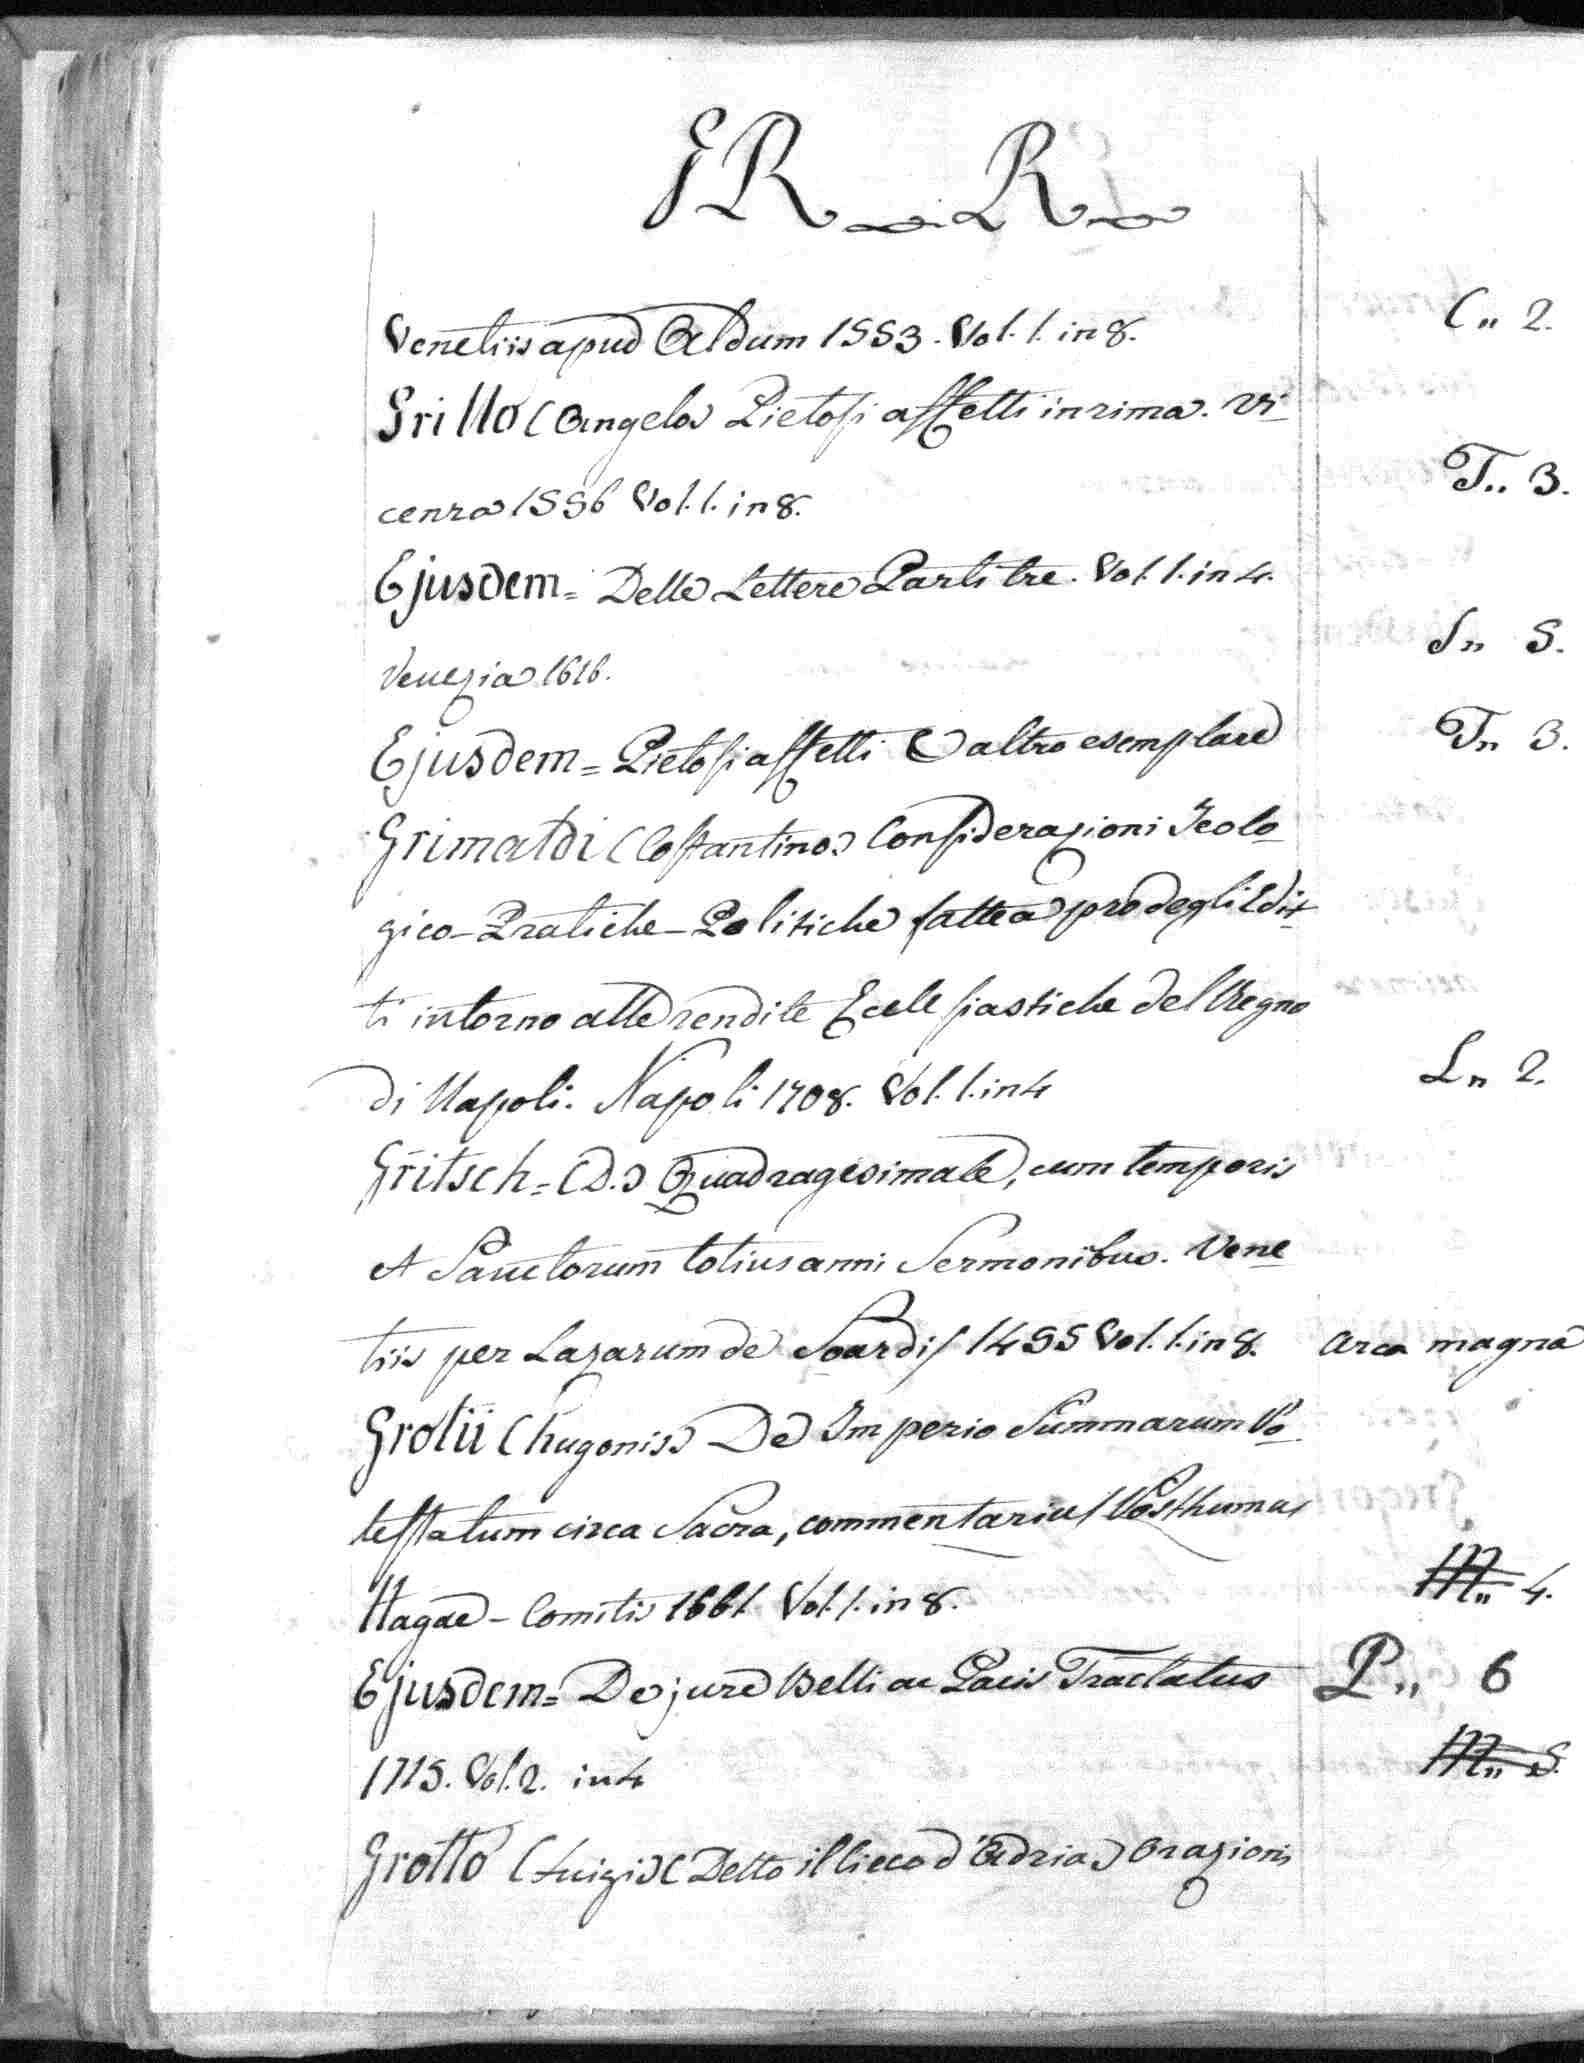 GR R
Venetiis apud Aldum 1553. Vol. 1. in 8. C" 2.
Grillo (Angelo) Pietosi affetti in rima. Vi-
cenza 1596 Vol. 1. in 8. T.. 3.
Ejusdem = Delle Lettere Parti tre. Vol. 1. in 4.
Venezia 1616. S" 5.
Ejusdem = Pietosi affetti (altro esemplare) T" 3.
Grimaldi (Costantino) Considerazioni Teolo-
gico-Pratiche-Politiche fatte a pro degli Edit-
ti intorno alle rendite Ecclesiastiche del Regno
di Napoli. Napoli 1708. Vol. 1. in 4 L" 2.
Gritsch = (D.) Quadragesimale, cum temporis
et Sanctorum totius anni Sermonibus. Vene-
tiis per Lazarum de Soardis 1495 Vol. 1. in 8. Arca magna
Grotii (Hugonis) De Imperio Summarum Po-
testatum circa Sacra, commentarius Posthumus
Hagae-Comitis 1661 Vol. 1. in 8. M" 4.
Ejusdem = De jure Belli ac Pacis Tractatus P" 6
1715. Vol. 2. in 4 M" 5.
Grotto (Luigi) (Detto il Cieco d'Adria) Orazioni